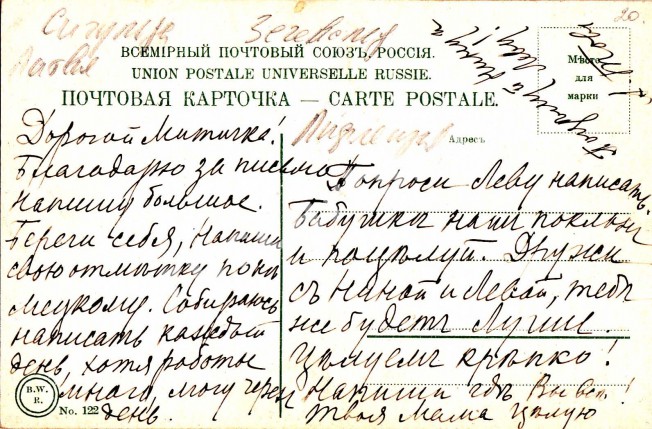 Сигулда Зегевольд
Латвия
20.
ВСЕМІРНЫЙ ПОЧТОВЫЙ СОЮЗЪ, РОССІЯ.
UNION POSTALE UNIVERSELLE RUSSIE.
ПОЧТОВАЯ КАРТОЧКА — CARTE POSTALE.
Мѣсто
для
марки
Адресъ
Дорогой Митичка!
Благодарю за письмо
напишу большое.
Береги себя, напиши
свою отмытку по
Собираюсь
написать каждый
день, хотя работы
много, могу через
день.
Попроси Леву написать.
Бабушкѣ наш поклонъ
и поцѣлуй. Дружи
съ Наной и Левой, тебѣ
же будетъ лучше.
Цѣлуемъ крѣпко!
Напиши гдѣ Вы все!
твоя мама цѣлую
B.W.
R.
No. 122